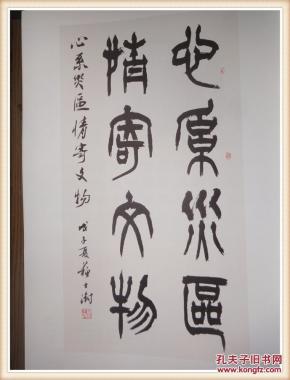 心系災區
情寄文物
心系災區情寄文物
戊子夏蘇士澍
孔夫子旧书网
www.kongfz.com